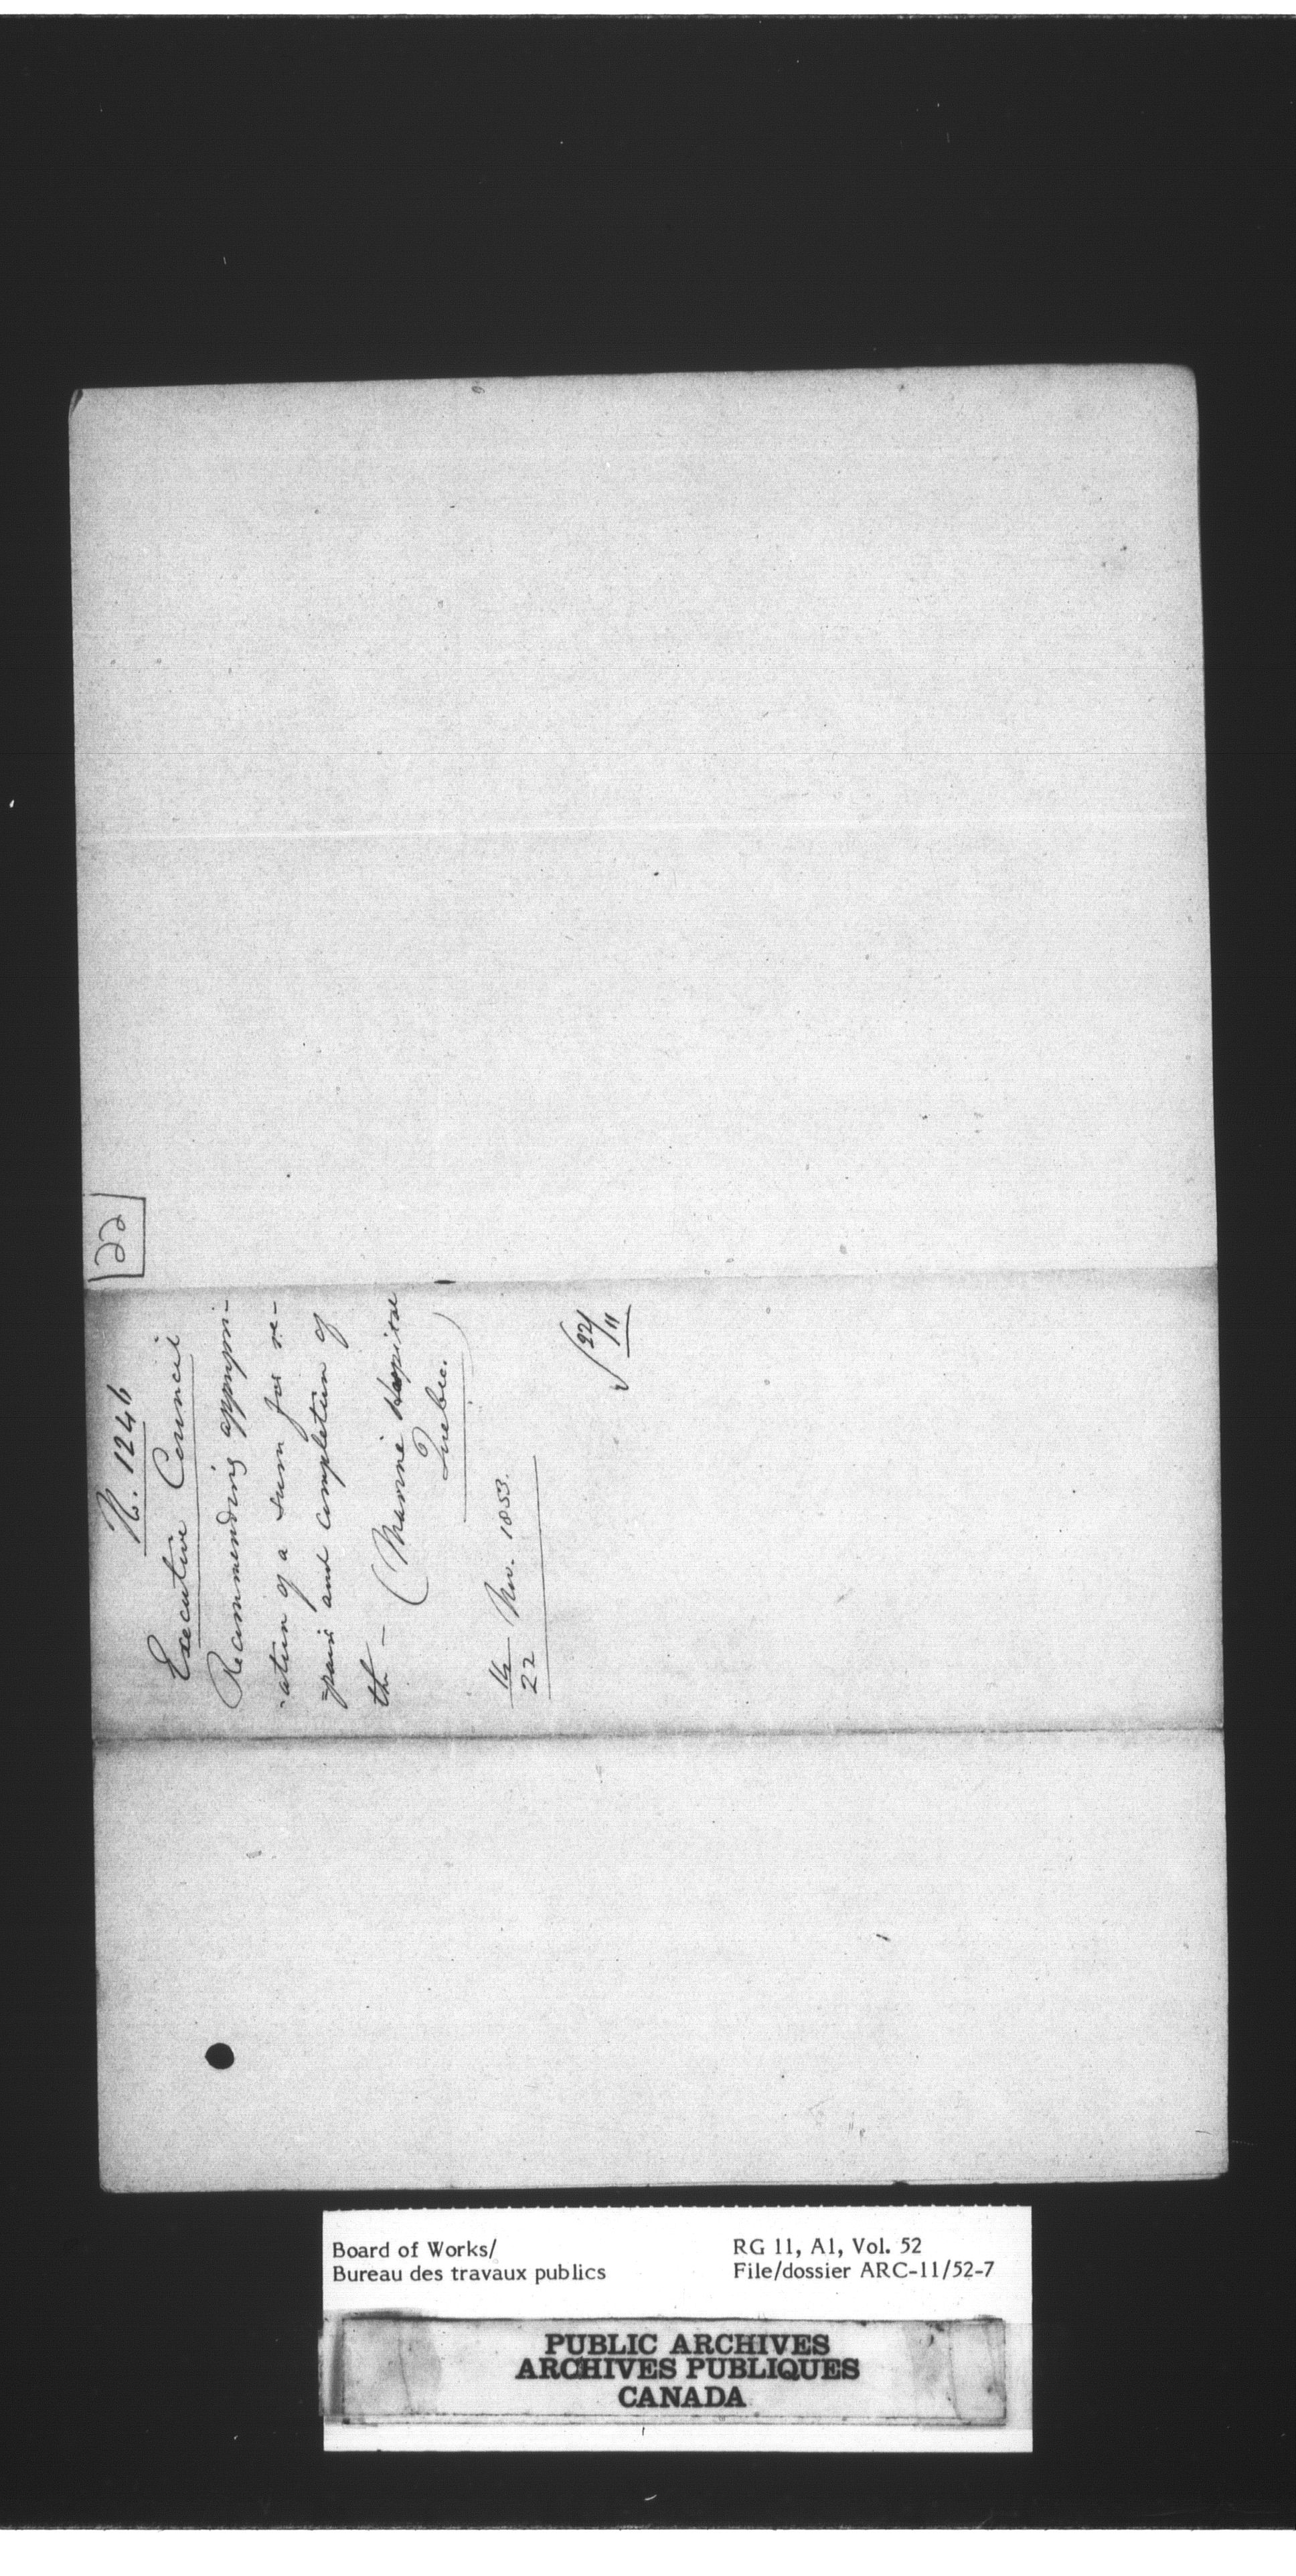 22
No. 1246
Executive Council
Recommending appropri-
-ation of a sum for re-
-pair and completion of
the - (Marine Hospital
Quebec.)
22 Nov. 1853.
22/11
Board of Works/
Bureau des travaux publics
RG 11, A1, Vol. 52
File/dossier ARC-11/52-7
PUBLIC ARCHIVES
ARCHIVES PUBLIQUES
CANADA